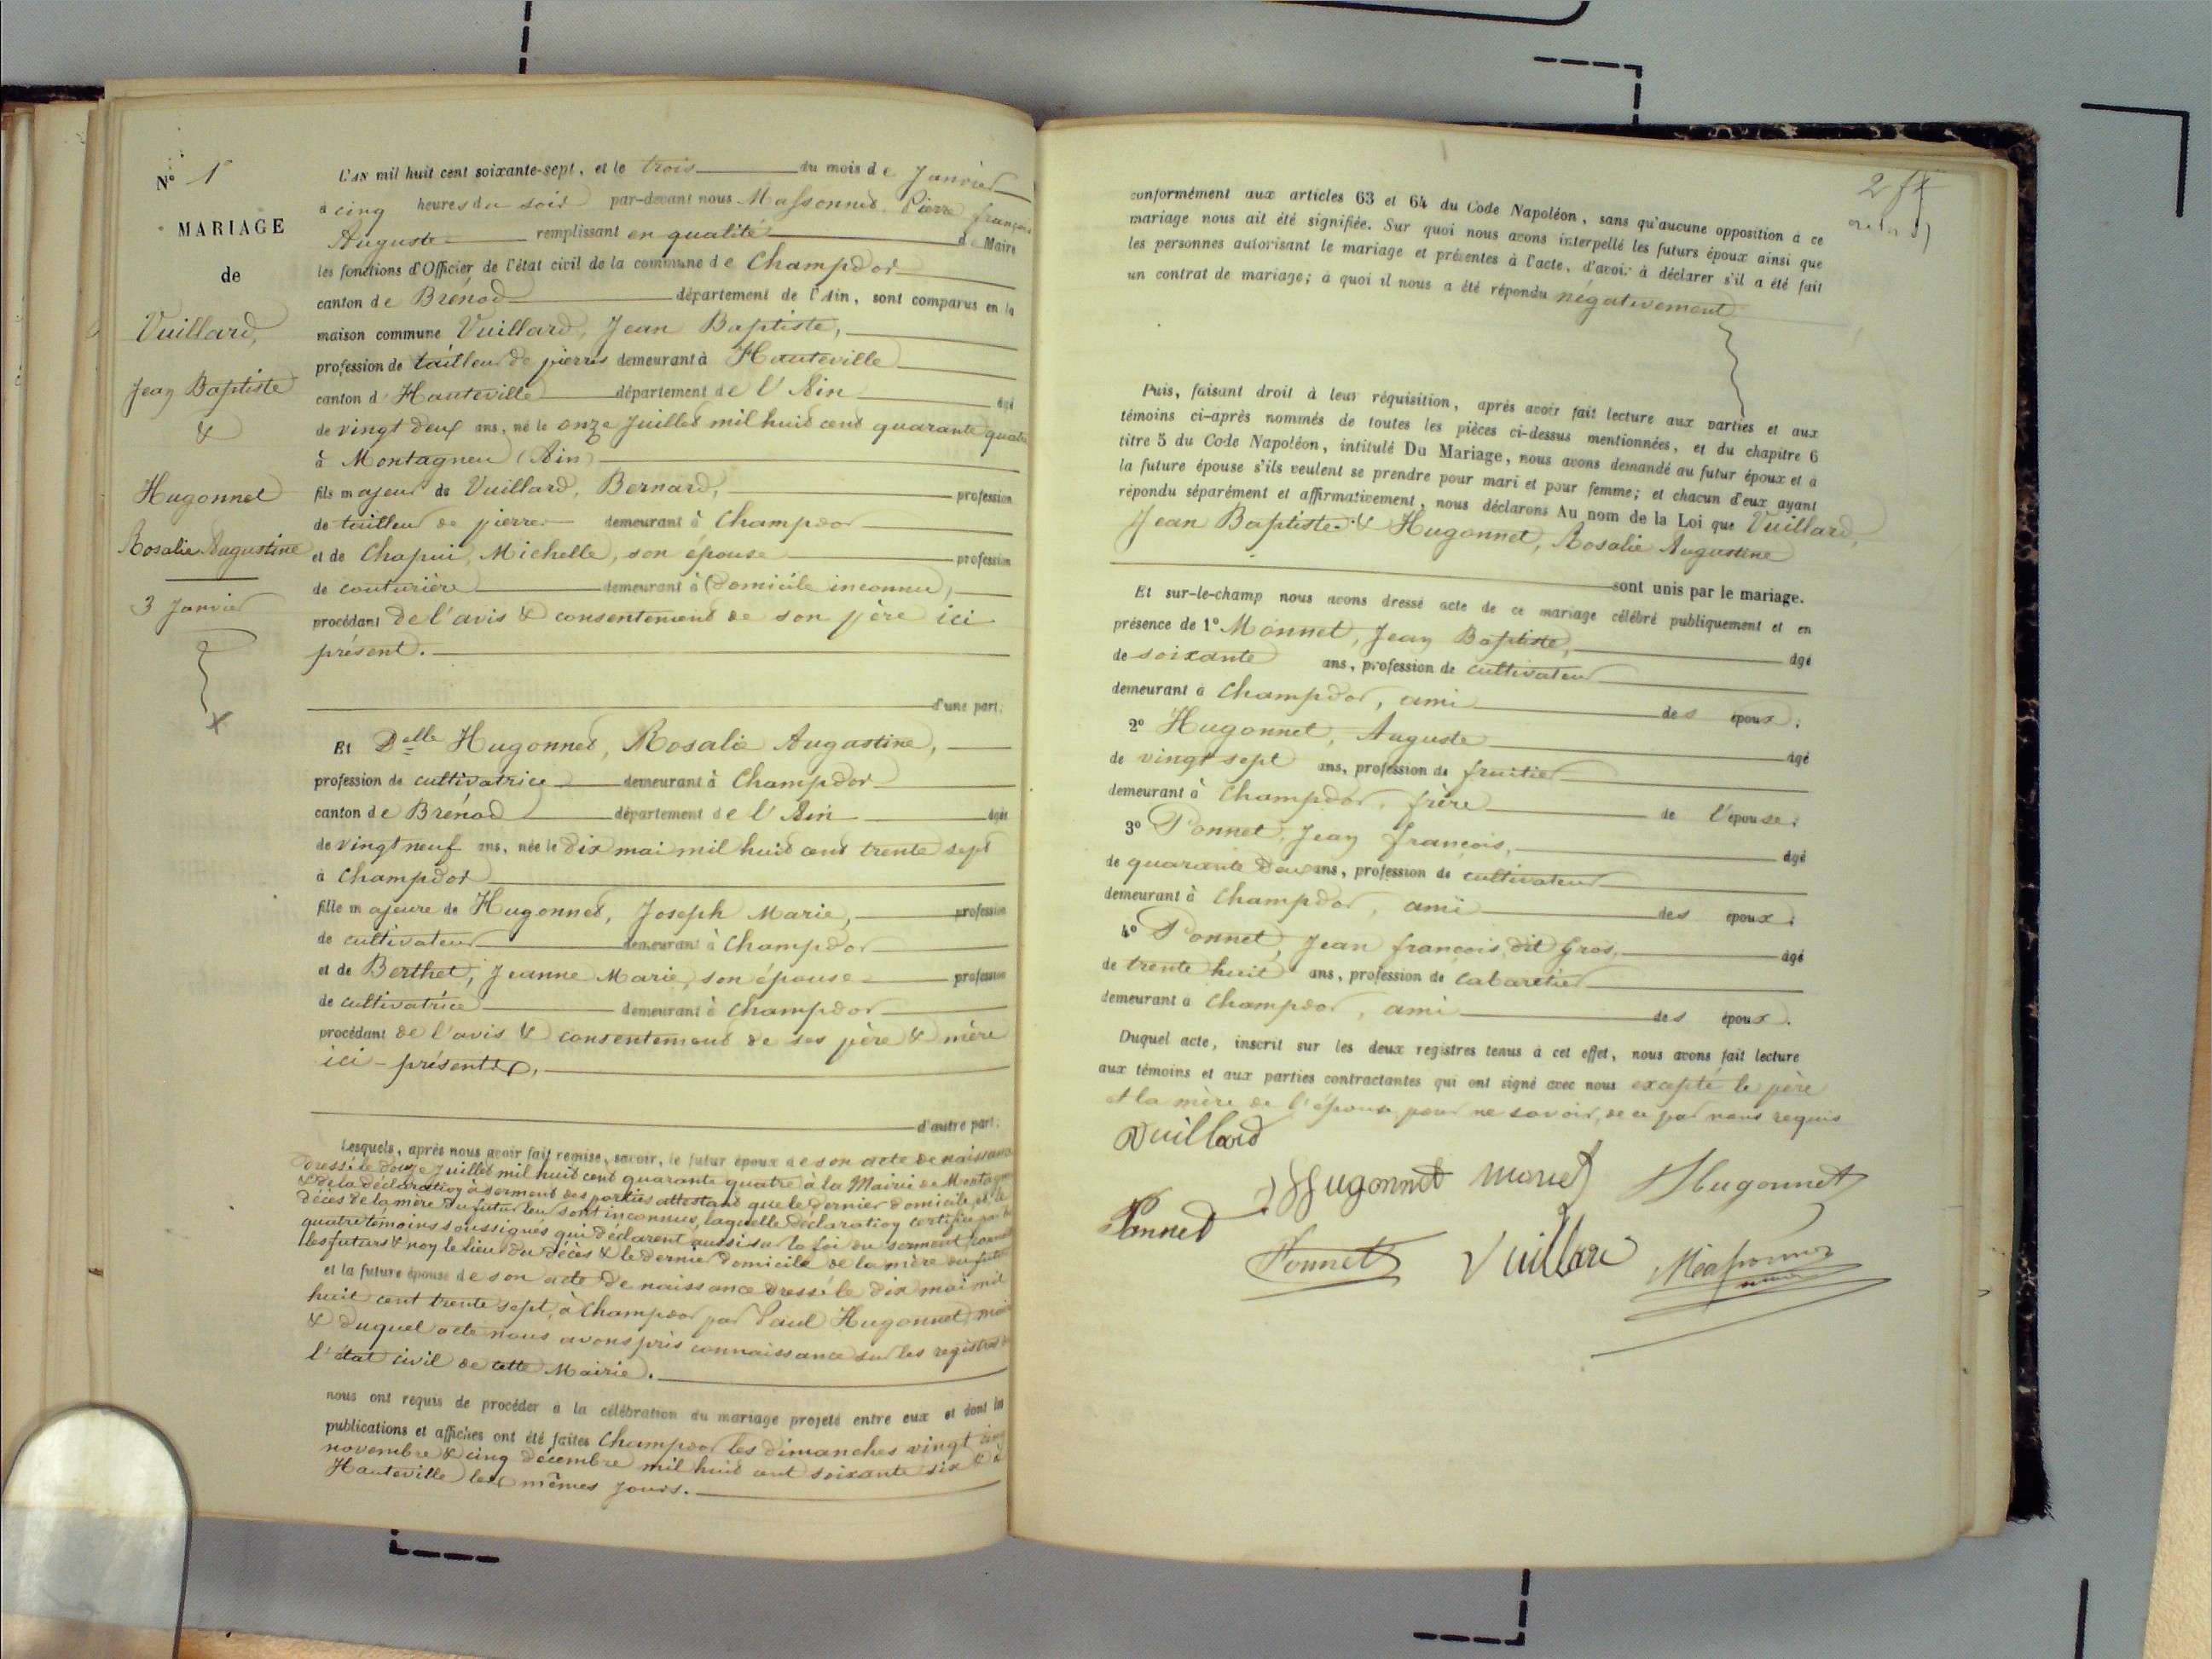 N° 1
MARIAGE
de
Vuillard,
Jean Baptiste
&
Hugonnet
Rosalie Augustine
3 Janvier
L'AN mil huit cent soixante-sept, et le trois du mois de Janvier
à cinq heures du soir par-devant nous Massonnet, Pierre françois
Auguste remplissant en qualité de Maire
les fonctions d'Officier de l'état civil de la commune de Champdor
canton de Brénod département de l'Ain, sont comparus en la
maison commune Vuillard, Jean Baptiste,
profession de tailleur de pierres demeurant à Hauteville
canton d'Hauteville département de l'Ain âgé
de vingt deux ans, né le onze Juillet mil huit cent quarante quatre
à Montagneu (Ain)
fils majeur de Vuillard, Bernard, profession
de tailleur de pierres demeurant à Champdor
et de Chapui, Michelle, son épouse profession
de couturière demeurant à (domicile inconnu),
procédant de l'avis & consentement de son père ici
présent.
d'une part.
Et Delle Hugonnet, Rosalie Augustine,
profession de cultivatrice demeurant à Champdor
canton de Brénod département de l'Ain âgée
de vingt neuf ans, née le dix mai mil huit cent trente sept
à Champdor
fille majeure de Hugonnet, Joseph Marie, profession
de cultivateur demeurant à Champdor
et de Berthet, Jeanne Marie, son épouse profession
de cultivatrice demeurant à Champdor
procédant de l'avis & consentement de ses père & mère
ici-présents,
d'autre part.
Lesquels, après nous avoir fait remise, savoir, le futur époux de son acte de naissance
dressé le douze Juillet mil huit cent quarante quatre à la Mairie de Montagneu
& de la déclaration à serment des parties attestant que le dernier domicile, et le
décès de la mère du futur leur sont inconnus, laquelle déclaration certifiée par les
quatre témoins soussignés qui déclarent aussi sur la foi du serment
les futurs & non le lieu du décès & le dernier domicile de la mère du futur
et la future épouse de son acte de naissance dressé le dix mai mil
huit cent trente sept, à Champdor par Paul Hugonnet, maire
& duquel acte nous avons pris connaissance sur les registres de
l'état civil de cette Mairie.
nous ont requis de procéder à la célébration du mariage projeté entre eux et dont les
publications et affiches ont été faites Champdor les dimanches vingt cinq
novembre & cinq décembre mil huit cent soixante six & à
Hauteville les mêmes jours.
conformément aux articles 63 et 64 du Code Napoléon, sans qu'aucune opposition à ce
mariage nous ait été signifiée. Sur quoi nous avons interpellé les futurs époux ainsi que
les personnes autorisant le mariage et présentes à l'acte, d'avoir à déclarer s'il a été fait
un contrat de mariage; à quoi il nous a été répondu négativement
Puis, faisant droit à leur réquisition, après avoir fait lecture aux parties et aux
témoins ci-après nommés de toutes les pièces ci-dessus mentionnées, et du chapitre 6
titre 5 du Code Napoléon, intitulé Du Mariage, nous avons demandé au futur époux et à
la future épouse s'ils veulent se prendre pour mari et pour femme; et chacun d'eux ayant
répondu séparément et affirmativement, nous déclarons Au nom de la Loi que Vuillard,
Jean Baptiste. & Hugonnet, Rosalie Augustine
sont unis par le mariage.
Et sur-le-champ nous avons dressé acte de ce mariage célébré publiquement et en
présence de 1° Monnet, Jean Baptiste, âgé
de soixante ans, profession de cultivateur
demeurant à Champdor, ami des époux.
2° Hugonnet, Auguste âgé
de vingt sept ans, profession de fruitier
demeurant à Champdor, frère de l'épouse.
3° Ponnet, Jean françois, âgé
de quarante deux ans, profession de cultivateur
demeurant à Champdor, ami des époux.
4° Ponnet, Jean françois, dit Gros, âgé
de trente huit ans, profession de cabaretier
demeurant à Champdor, ami des époux.
Duquel acte, inscrit sur les deux registres tenus à cet effet, nous avons fait lecture
aux témoins et aux parties contractantes qui ont signé avec nous excepté le père
et la mère de l'épouse, pour ne savoir, de ce par nous requis
Vuillard
Hugonnet Monet Hugonnet
Ponnet
Ponnet Vuillard Massonnet